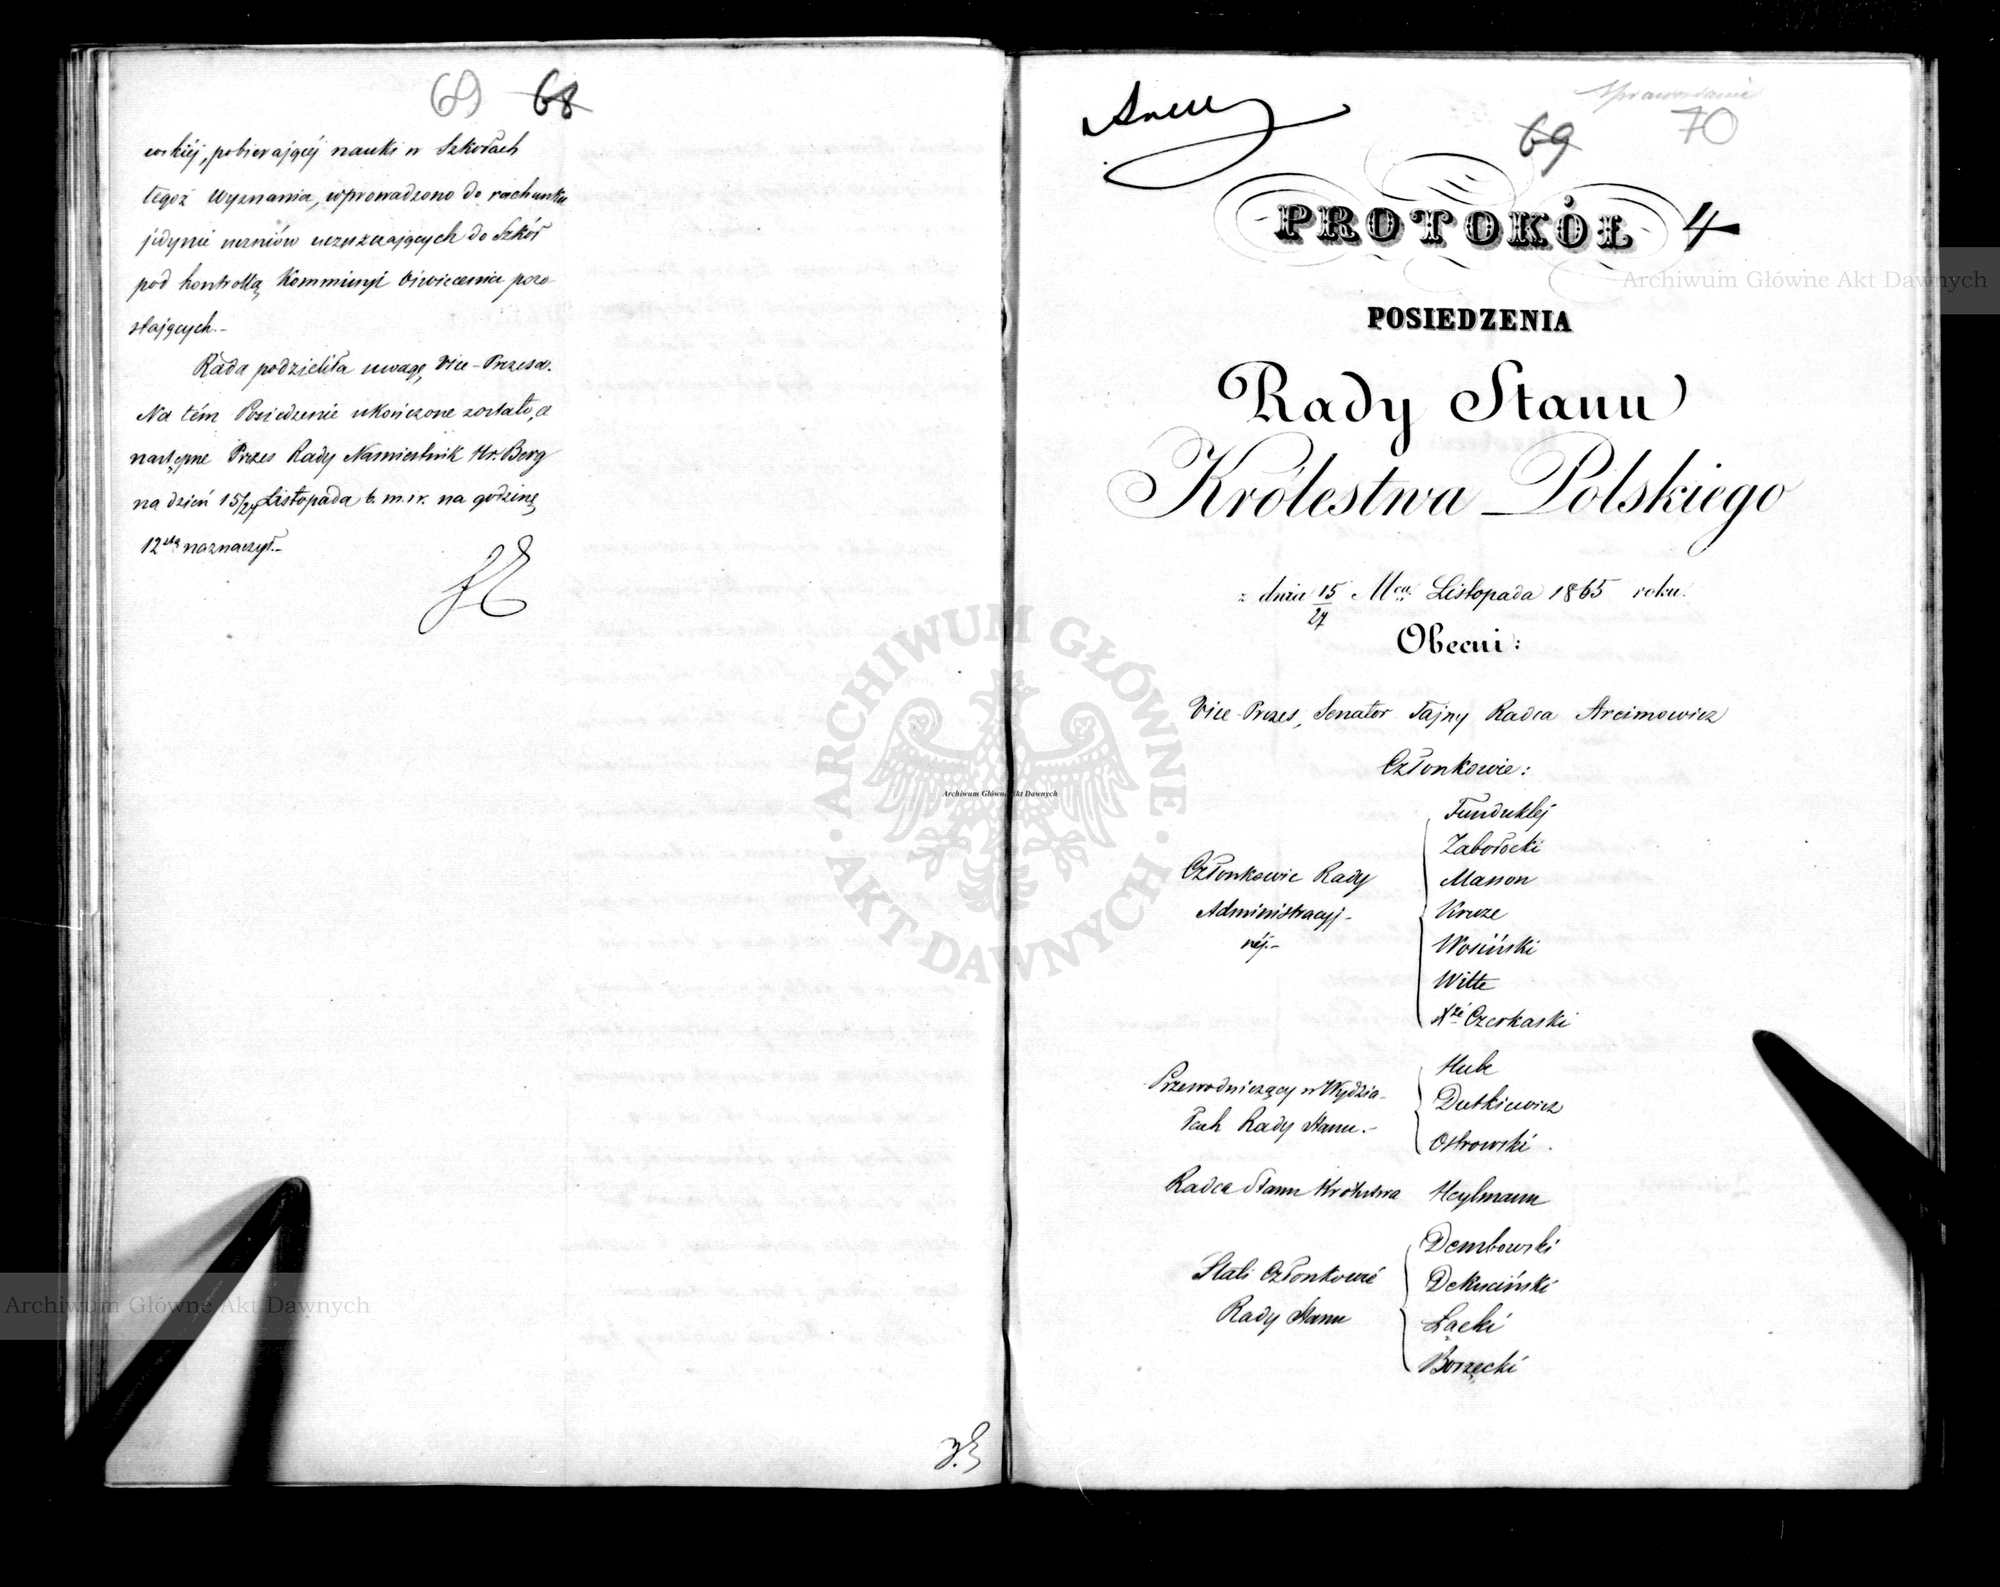 69 68
wskiéj, pobierającéj nauki w Szkołach
tegoż Wyznania, wprowadzono do rachunku
jedynie uczniów uczęszczających do Szkół
pod kontrollą Kommissyi Oświecenia pozo-
stających.-
Rada podzieliła uwagę Vice-Prezesa.
Na tém Posiedzenie ukończone zostało, a
następne Prezes Rady Namiestnik Hr. Berg
na dzień 15/27 Listopada b. m. i r. na godzinę
12stą naznaczył.-
Sprawdzanie
69 70
PROTOKÓŁ 4
POSIEDZENIA
Rady Stanu
Królestwa Polskiego
z dnia 15/27 Mca Listopada 1865 roku.
Obecni:
Vice-Prezes, Senator Tajny Radca Arcimowicz
Członkowie:
Członkowie Rady
Administracyj-
néj.-
Funduklej
Zabołocki
Masson
Kruze
Wosiński
Witte
Xżę Czerkaski
Przewodniczący w Wydzia-
łach Rady Stanu.-
Hube
Dutkiewicz
Ostrowski.
Radca Stanu Królestwa Heylmann
Stali Członkowie
Rady Stanu
Dembowski
Dekuciński
Łącki
Borzęcki
Archiwum Główne Akt Dawnych
ARCHIWUM GŁÓWNE AKT DAWNYCH
Archiwum Główne Akt Dawnych
Archiwum Główne Akt Dawnych